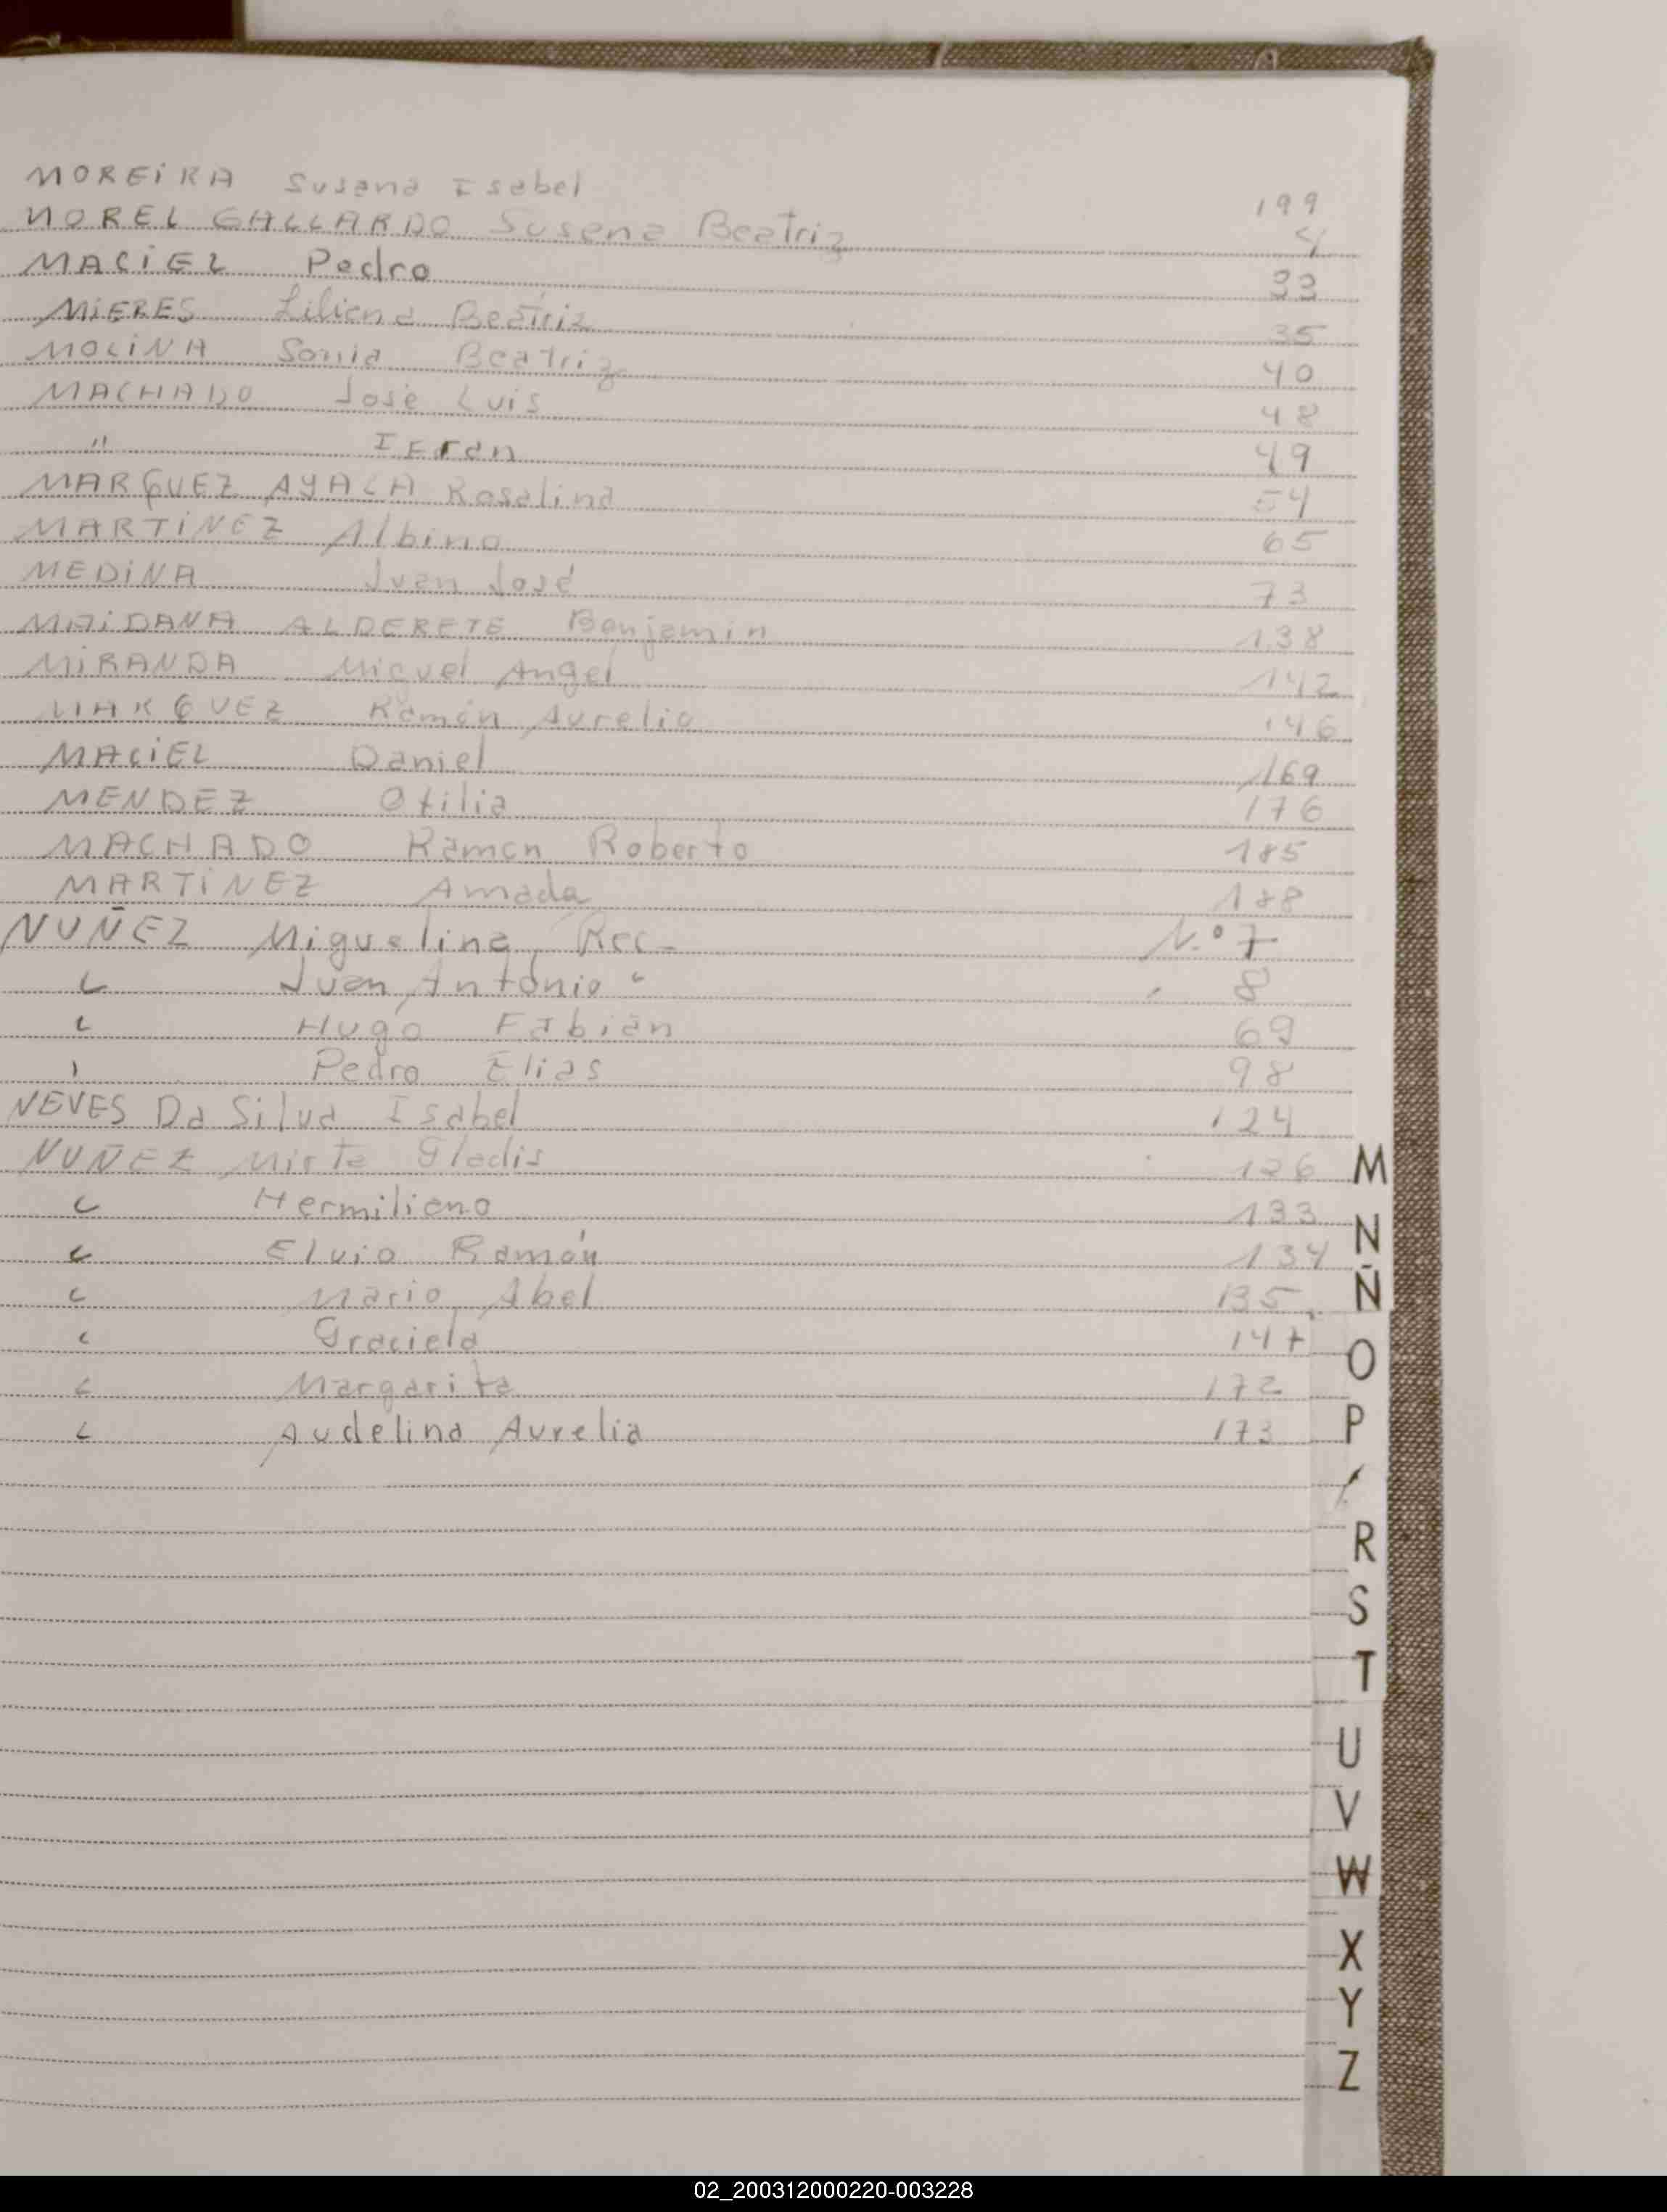 MOREiRA Susana Isabel 199
MOREL GALLARDO Susana Beatriz 4
MACiEL Pedro 33
MiERES Liliana Beatriz 35
MOLiNA Sonia Beatriz 40
MACHADO José Luis 48
" 49
MARQUEZ AYALA Rosalina 54
MARTiNEZ Albino 65
MEDiNA Juan José 73
MAiDANA ALDERETE Benjamin 138
MiRANDA Miguel Angel 142
MARQUEZ Ramón Aurelio 146
MACiEL Daniel 169
MENDEZ Otilia 176
MACHADO Ramon Roberto 185
MARTiNEZ Amada 188
NUÑEZ Miguelina Rec- N.º 7
" Juan Antonio " " 8
" Hugo Fabián 69
" Pedro Elias 98
NEVES Da Silva Isabel 124
NUÑEZ Mirta Gladis 126
" Hermiliano 133
" Elvio Ramón 134
" Mario Abel 135
" Graciela 147
" Margarita 172
" Audelina Aurelia 173
M
N
Ñ
O
P
R
S
T
U
V
W
X
Y
Z
02_200312000220-003228